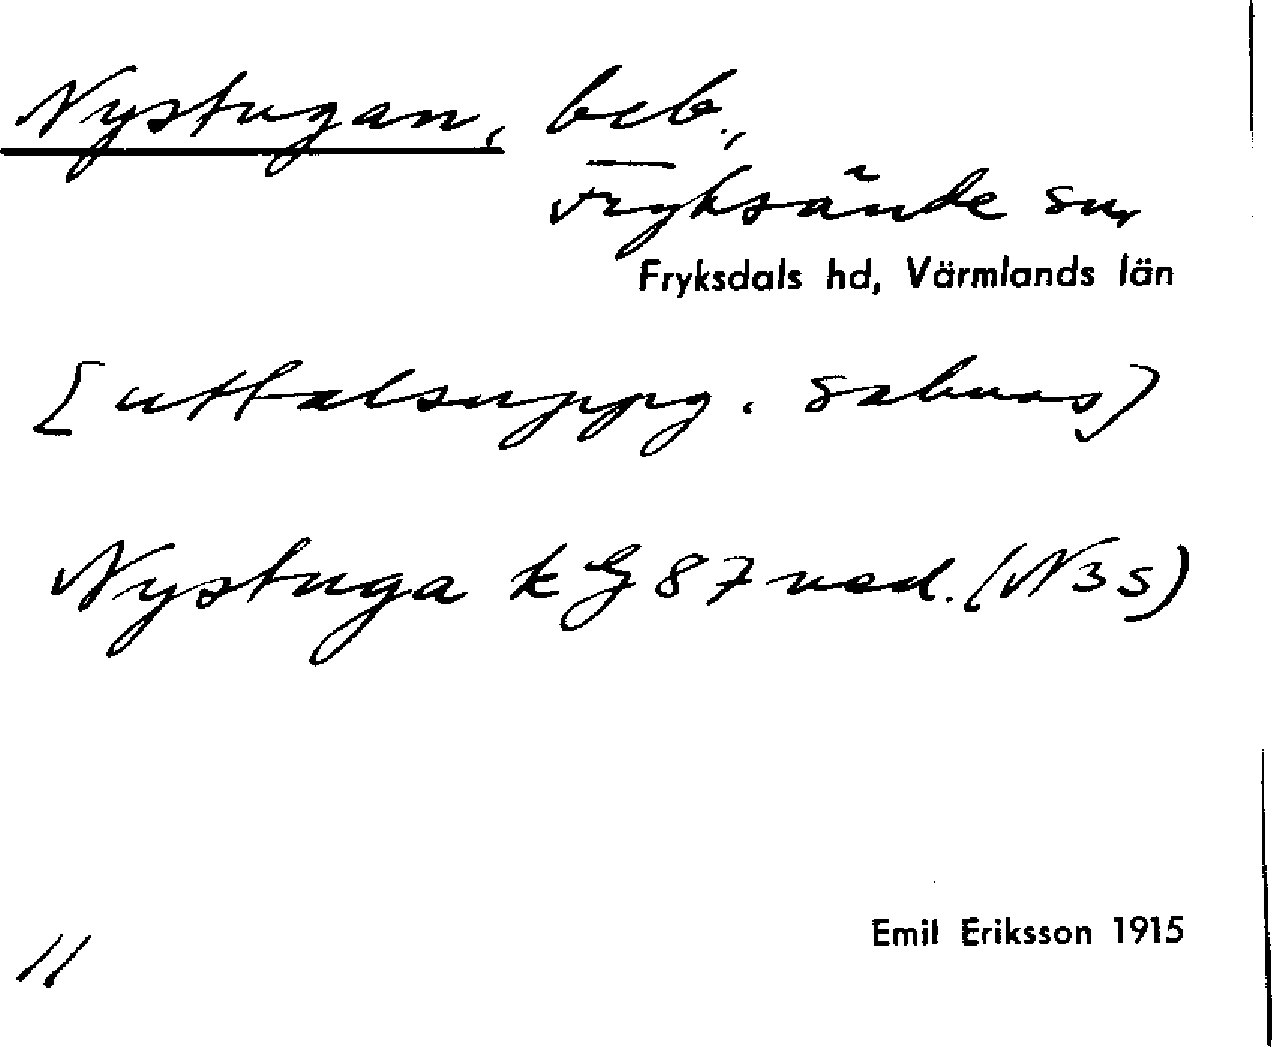 Nystugan, beb.,
Fryksände sn,
Fryksdals hd, Värmlands län
[uttalsuppg. saknas)
Nystuga k G 87 ned. (N 3 S)
Emil Eriksson 1915
11